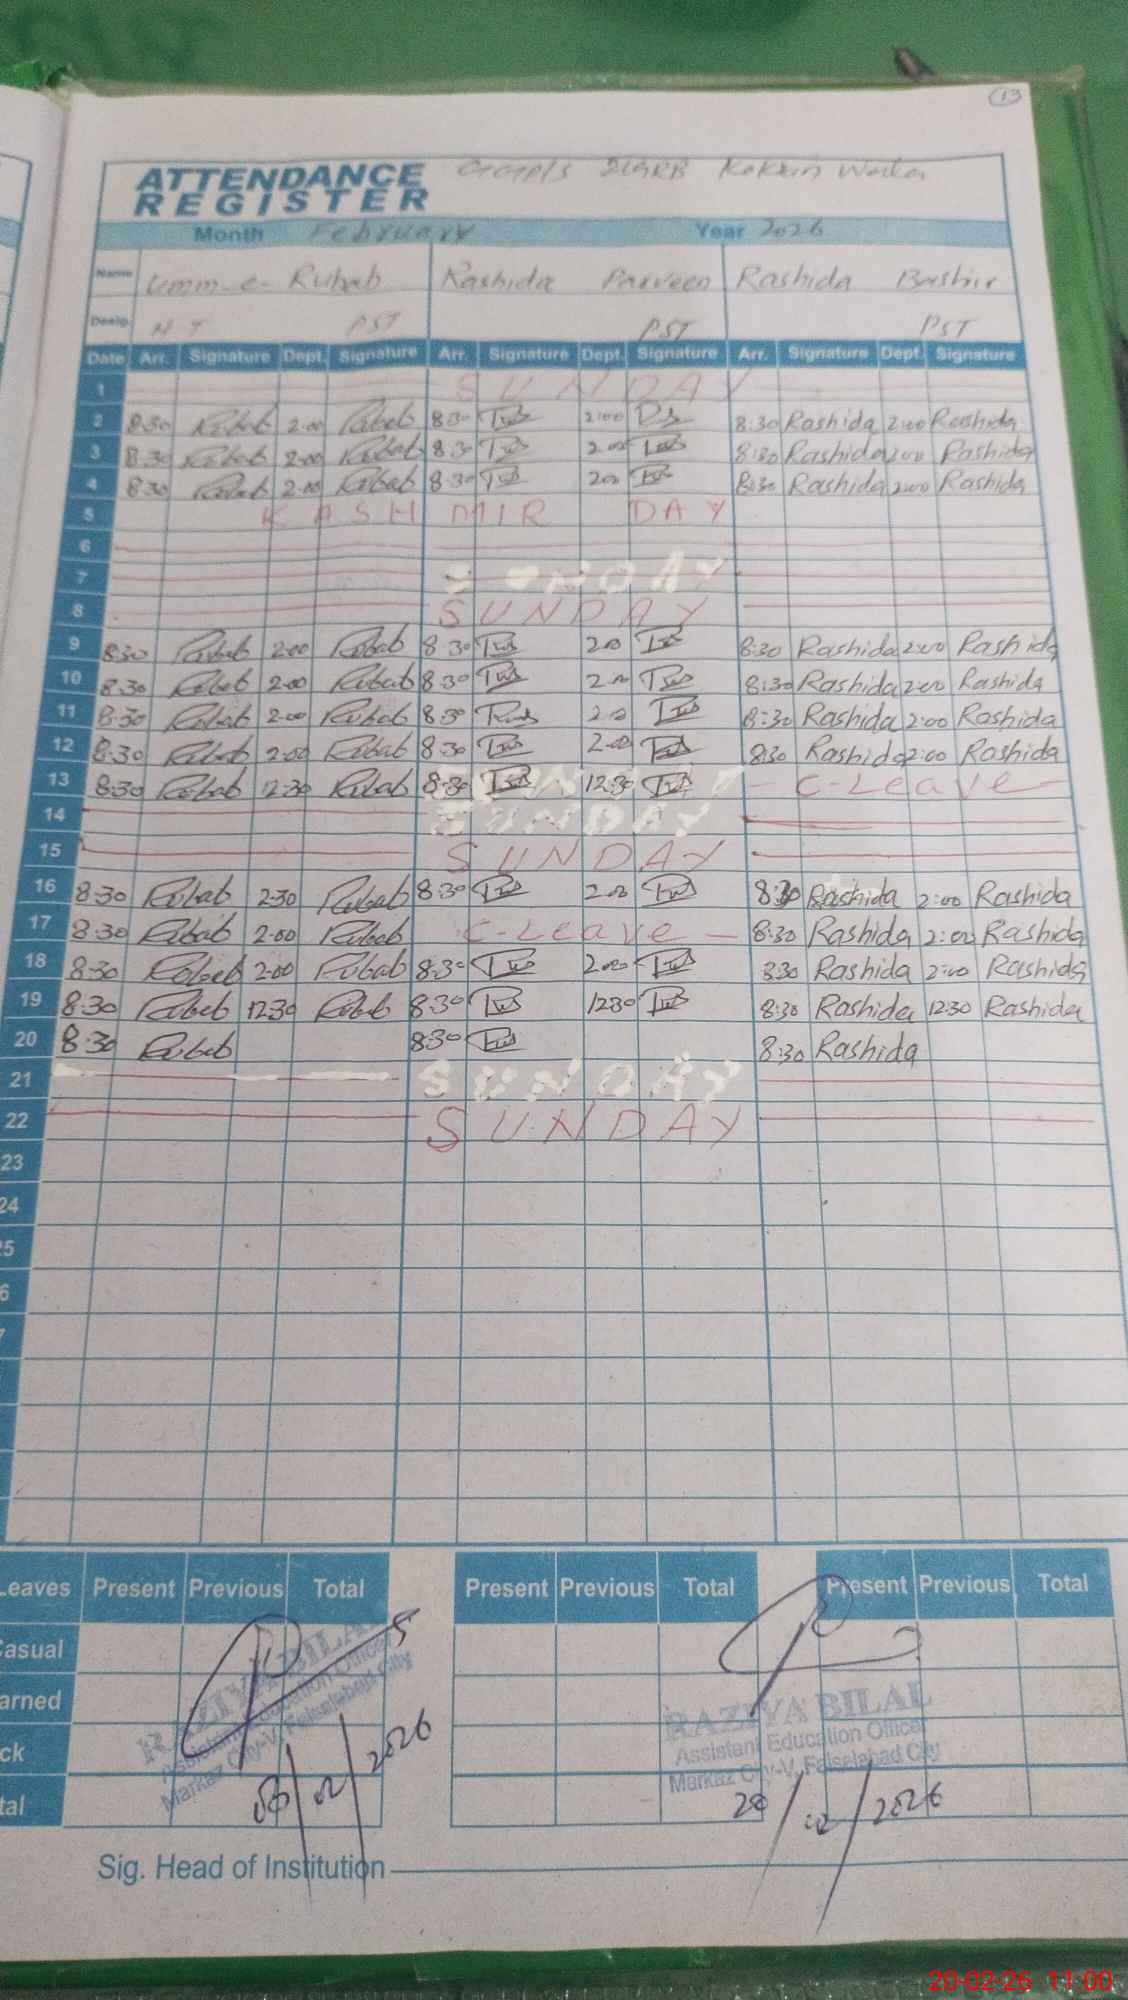 13
ATTENDANCE REGISTER
Month February Year 2026
Name Umm-e-Rubab Rashida Parveen Rashida Bashir
Desig. PST PST PST
Date Arr. Signature Dept. Signature Arr. Signature Dept. Signature Arr. Signature Dept. Signature
1 SUNDAY
2 8:30 Rubab 2:00 Rubab 8:30 2:00 8:30 Rashida 2:00 Rashida
3 8:30 Rubab 2:00 Rubab 8:30 2:00 8:30 Rashida 2:00 Rashida
4 8:30 Rubab 2:00 Rubab 8:30 2:00 8:30 Rashida 2:00 Rashida
5 KASHMIR DAY
6
7 SUNDAY
8 SUNDAY
9 8:30 Rubab 2:00 Rubab 8:30 2:00 8:30 Rashida 2:00 Rashida
10 8:30 Rubab 2:00 Rubab 8:30 2:00 8:30 Rashida 2:00 Rashida
11 8:30 Rubab 2:00 Rubab 8:30 2:00 8:30 Rashida 2:00 Rashida
12 8:30 Rubab 2:00 Rubab 8:30 2:00 8:30 Rashida 2:00 Rashida
13 8:30 Rubab 12:30 Rubab 8:30 12:30 C-Leave
14 SUNDAY
15 SUNDAY
16 8:30 Rubab 2:30 Rubab 8:30 2:00 8:30 Rashida 2:00 Rashida
17 8:30 Rubab 2:00 Rubab C-Leave 8:30 Rashida 2:00 Rashida
18 8:30 Rubab 2:00 Rubab 8:30 2:00 8:30 Rashida 2:00 Rashida
19 8:30 Rubab 12:30 Rubab 8:30 12:30 8:30 Rashida 12:30 Rashida
20 8:30 Rubab 8:30 8:30 Rashida
21 SUNDAY
22 SUNDAY
23
24
Leaves Present Previous Total Present Previous Total Present Previous Total
Casual
RAZIYA BILAL
Assistant Education Officer
Markaz City-V, Faisalabad City
02/2026
RAZIYA BILAL
Assistant Education Officer
Markaz City-V, Faisalabad City
20/02/2026
Sig. Head of Institution
20-02-26 11:00